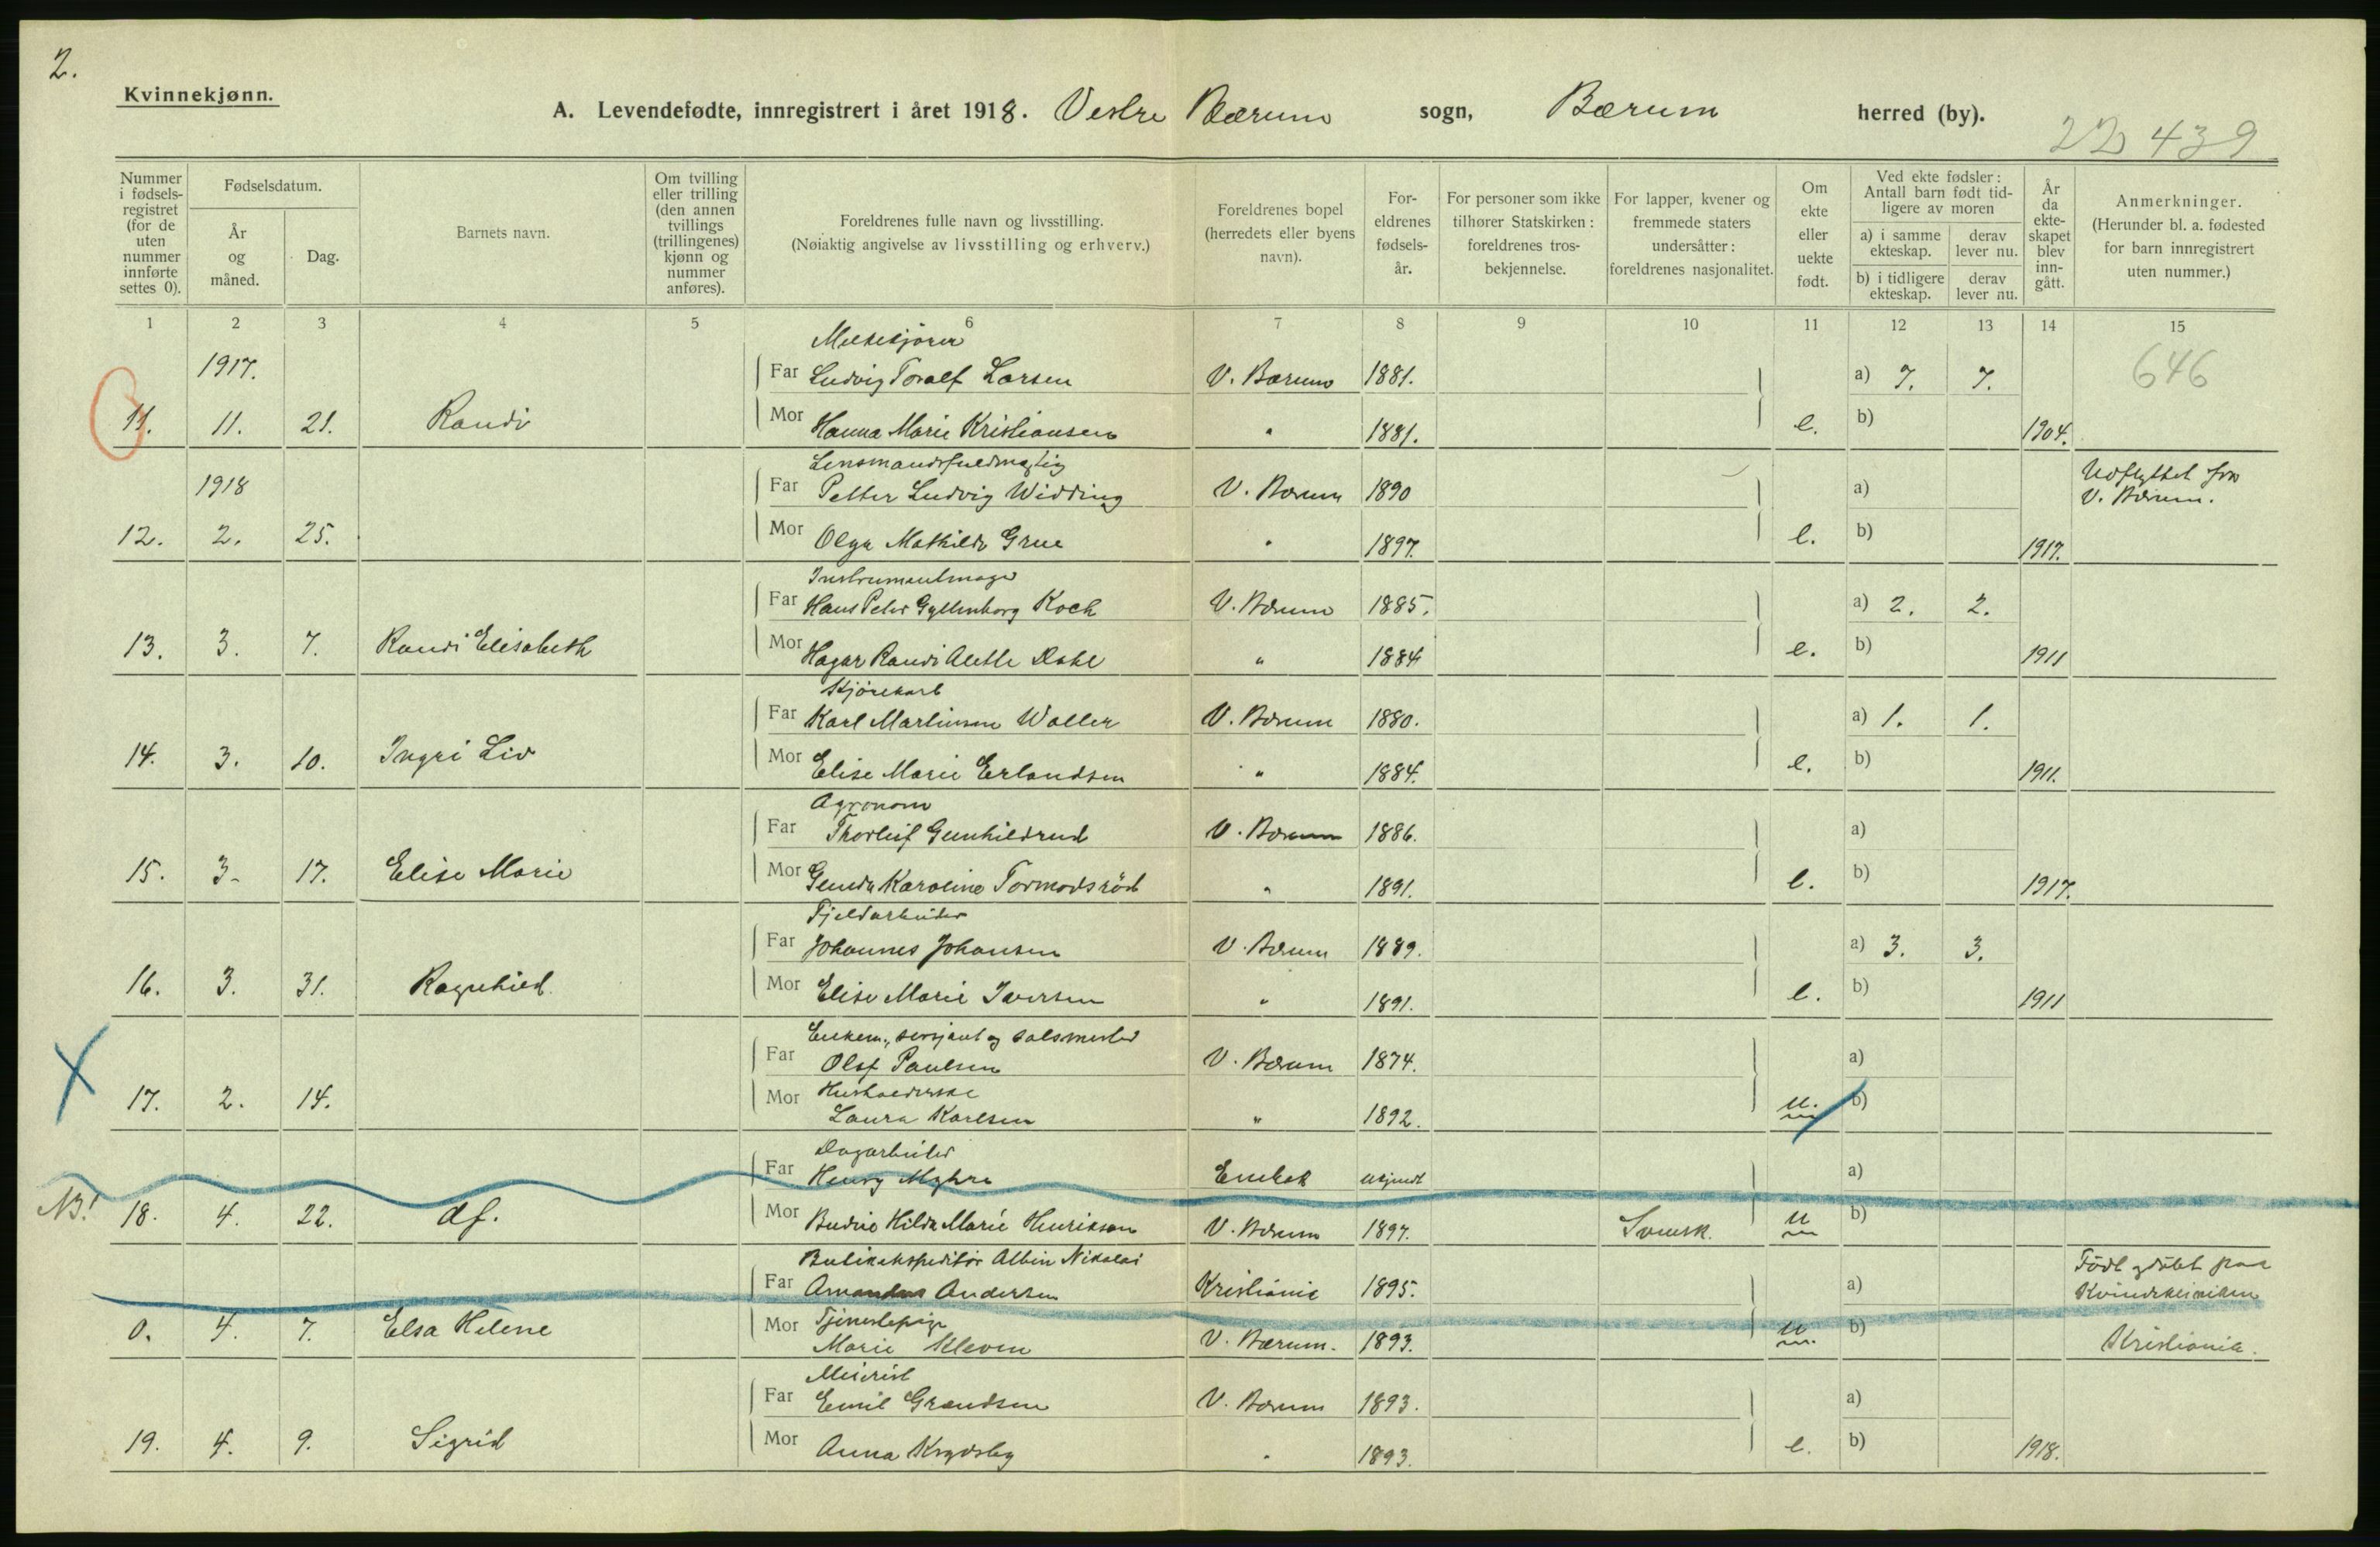 2.
Kvinnekjønn.
A. Levendefødte, innregistrert i året 1918. Vestre Bærum sogn, Bærum herred (by).
22 439
Nummer i fødsels-registret (for de uten nummer innførte settes 0).
Fødselsdatum.
År og måned.
Dag.
Barnets navn.
Om tvilling eller trilling (den annen tvillings (trillingenes) kjønn og nummer anføres).
Foreldrenes fulle navn og livsstilling.
(Nøiaktig angivelse av livsstilling og erhverv.)
Foreldrenes bopel (herredets eller byens navn).
For-eldrenes fødsels-år.
For personer som ikke tilhører Statskirken: foreldrenes tros-bekjennelse.
For lapper, kvener og fremmede staters undersåtter: foreldrenes nasjonalitet.
Om ekte eller uekte født.
Ved ekte fødsler: Antall barn født tid-ligere av moren
a) i samme ekteskap.
derav lever nu.
b) i tidligere ekteskap.
derav lever nu.
År da ekte-skapet blev inn-gått.
Anmerkninger.
(Herunder bl. a. fødested for barn innregistrert uten nummer.)
1 2 3 4 5 6 7 8 9 10 11 12 13 14 15
1917.
Far Ludvig Toralf Larsen V. Bærum 1881. a) 7. 7. 646
11. 11. 21. Randi Mor Hanna Marie Kristiansen " 1881. e. b) 1904.
Lensmandsfuldmægtig
1918 Far Petter Ludvig Widding V. Bærum 1890 a) Udflyttet fra V. Bærum.
12. 2. 25. Mor Olga Mathilde Grue " 1897. e. b) 1917.
Instrumentmager
Far Hans Peter Gyllenborg Koch V. Bærum 1885. a) 2. 2.
13. 3. 7. Randi Elisabeth Mor Hagar Randi Alette Dahl " 1884 e. b) 1911
Kjørekarl
Far Karl Martinsen Waller V. Bærum 1880. a) 1. 1.
14. 3. 10. Ingri Liv Mor Elise Marie Erlandsen " 1884. e. b) 1911.
Agronom
Far Thorleif Gunhildrud V. Bærum 1886. a)
15. 3. 17. Elise Marie Mor Karoline Tormodsrød " 1891. e. b) 1917.
Fjeldarbeider
Far Johannes Johansen V. Bærum 1889. a) 3. 3.
16. 3. 31. Ragnhild. Mor Elise Marie Iversen " 1891. e. b) 1911
Enkem., sersjant og salsmester
Far Olaf Paulsen V. Bærum 1874. a)
Husholderske
17. 2. 14. Mor Laura Karlsen " 1892. u. b)
Dagarbeider
Far Henry Myhre Enebak ukjendt a)
NB! 18. 4. 22. df. Mor Hilda Marie Henrikson V. Bærum 1897. Svensk. u b)
Butikekspeditør Albin Nikolai
Far Amandus Andersen Kristiania 1895. a) Født og døbt paa Kvindeklinikken
Tjenestepige
0. 4. 7. Elsa Helene Mor Marie Kleven V. Bærum. 1893. u. b) Kristiania.
Meierist
Far Emil Grandsen V. Bærum 1893. a)
19. 4. 9. Sigrid Mor Anna " 1893. e. b) 1918.